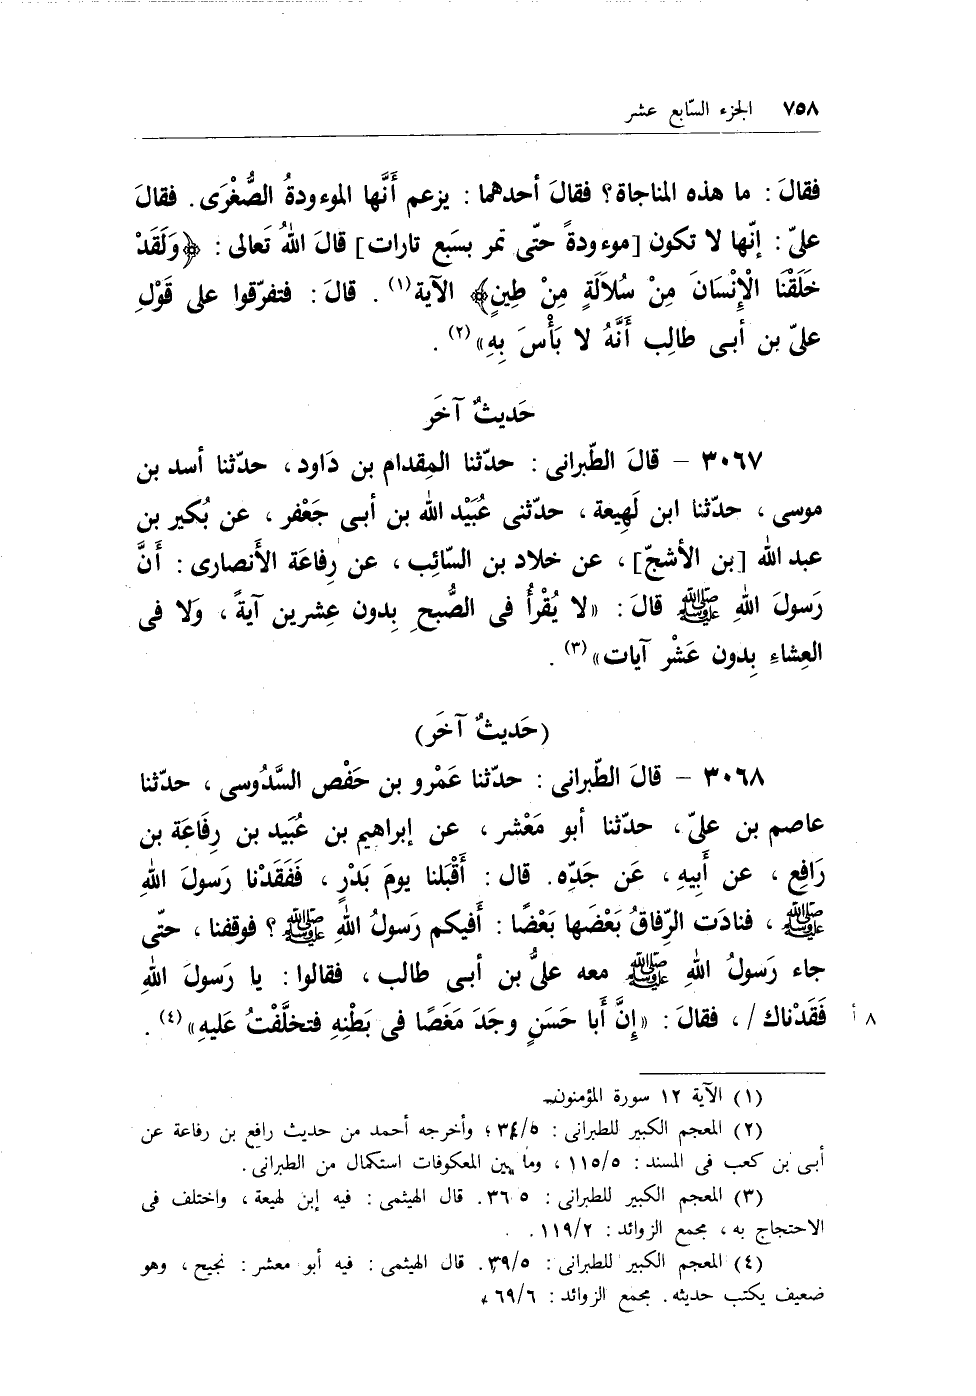 ٧٥٨ الجزء السّابع عشر
فقالَ : ما هذه المناجاة؟ فقالَ أحدهما : يزعم أَنَّها الموءودةُ الصُّغْرَى. فقالَ
علىّ : إنّها لا تكون [موءودةً حتّى تمر بسَبع تارات] قالَ اللهُ تَعالى : ﴿وَلَقَدْ
خَلَقْنَا الْإِنْسَانَ مِنْ سُلَالَةٍ مِنْ طِينٍ﴾ الآية(١) . قالَ : فتفرّقوا على قَوْلِ
علىّ بن أبـى طالِب أَنَّهُ لا بَأْسَ بِهِ»(٢) .
حَديثٌ آخَر
٣٠٦٧ – قالَ الطّبرانى : حدّثنا المِقدام بن دَاود، حدّثنا أسد بن
موسى ، حدّثنا ابن لَهِيعة ، حدّثنى عُبَيْد الله بن أبـى جَعْفر ، عن بُكير بن
عبد الله [بن الأشجّ]، عن خلاد بن السّائِب ، عن رِفاعَة الأَنصارى : أَنَّ
رَسولَ اللهِ ﷺ قالَ : «لا يُقْرأُ فى الصُّبحِ بِدون عِشرين آيةً ، وَلا فى
العِشاءِ بِدون عَشْر آيات»(٣) .
(حَديثٌ آخَر)
٣٠٦٨ – قالَ الطّبرانى : حدّثنا عَمْرو بن حَفْص السَّدُوسى ، حدّثنا
عاصم بن علىّ، حدّثنا أبو مَعْشر ، عن إبراهيم بن عُبَيد بن رِفَاعَة بن
رَافِع ، عن أَبِيهِ ، عَن جَدِّه. قال : أَقْبَلنا يومَ بَدْرٍ ، فَفَقَدْنا رَسولَ اللهِ
ﷺ ، فنادَت الرِّفاقُ بَعْضَها بَعْضًا : أَفيكم رَسولُ اللهِ ﷺ ؟ فوقفنا ، حتّى
جاء رَسولُ اللهِ ﷺ معه علىُّ بن أبـى طالب ، فقالوا : يا رَسولَ اللهِ
فَقَدْناك /، فقالَ : «إِنَّ أَبا حَسَنٍ وجَدَ مَغَصًا فى بَطْنِهِ فتخلَّفْتُ عَليهِ»(٤) . ٨ أ
(١) الآية ١٢ سورة المؤمنون.
(٢) المعجم الكبير للطبرانى : ٣٤/٥ ؛ وأخرجه أحمد من حديث رافع بن رفاعة عن
أبـى بن كعب فى المسند : ١١٥/٥ ، وما بين المعكوفات استكمال من الطبرانى.
(٣) المعجم الكبير للطبرانى : ٣٦٥. قال الهيثمى : فيه إبن لهيعة ، واختلف فى
الاحتجاج به ، مجمع الزوائد : ١١٩/٢ .
(٤) المعجم الكبير للطبرانى : ٣٩/٥. قال الهيثمى : فيه أبو معشر : نجيح ، وهو
ضعيف يكتب حديثه. مجمع الزوائد : ٦٩/٦ .